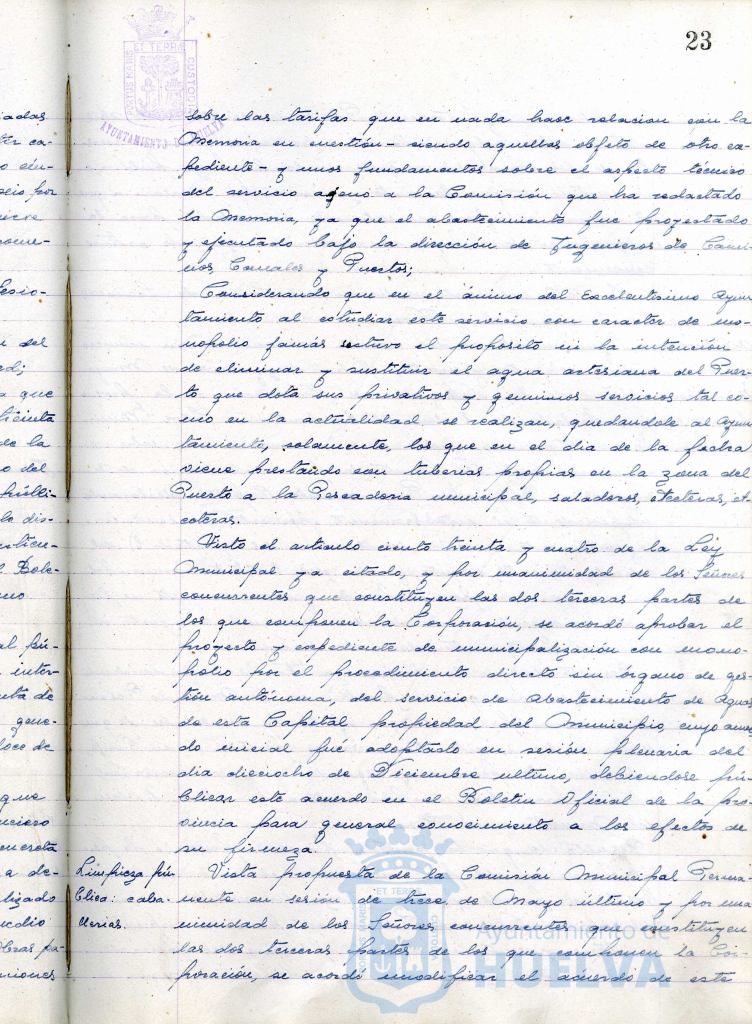 23
PORTUS MARIS ET TERRAE CUSTODIA
AYUNTAMIENTO DE HUELVA
sobre las tarifas que en nada hace relacion con la
Memoria en cuestión - siendo aquellas objeto de otro ex-
pediente - y unos fundamentos sobre el aspecto técnico
del servicio ageno a la Comisión que ha redactado
la Memoria, ya que el abastecimiento fue proyectado
y ejecutado bajo la dirección de Ingenieros de Cami-
nos, Canales y Puertos;
Considerando que en el ánimo del Excelentísimo Ayun-
tamiento al estudiar este servicio con caracter de mo-
nopolio jamás estuvo el proposito ni la intención
de eliminar y sustituir el agua artesiana del Puer-
to que dota sus privativos y genuinos servicios tal co-
mo en la actualidad se realizan, quedandole al Ayun
tamiento, solamente, los que en el dia de la fecha
viene prestando con tuberias propias en la zona del
Puerto a la Pescaderia municipal, saladeros, etceteras, et-
ceteras.
Visto el articulo ciento treinta y cuatro de la Ley
Municipal ya citado, y por unanimidad de los Señores
concurrentes que constituyen las dos terceras partes de
los que componen la Corporación, se acordó aprobar el
proyecto y expediente de municipalización con mono-
polio por el procedimiento directo sin órgano de ges-
tión autónoma, del servicio de Abastecimiento de Aguas
de esta Capital propiedad del Municipio, cuyo acuer-
do inicial fué adoptado en sesión plenaria del
dia dieciocho de Diciembre ultimo, debiendose pú-
blicar este acuerdo en el Boletin Oficial de la pro
vincia para general conocimiento a los efectos de
su firmeza.
Limpieza pú-
blica: caba-
llerias.
Vista propuesta de la Comisión Municipal Perma-
nente en sesión de trece de Mayo último y por una
nimidad de los Señores concurrentes que constituyen
las dos terceras partes de los que componen la Cor-
poración, se acordó modificar el acuerdo de este
Ayuntamiento de
HUELVA